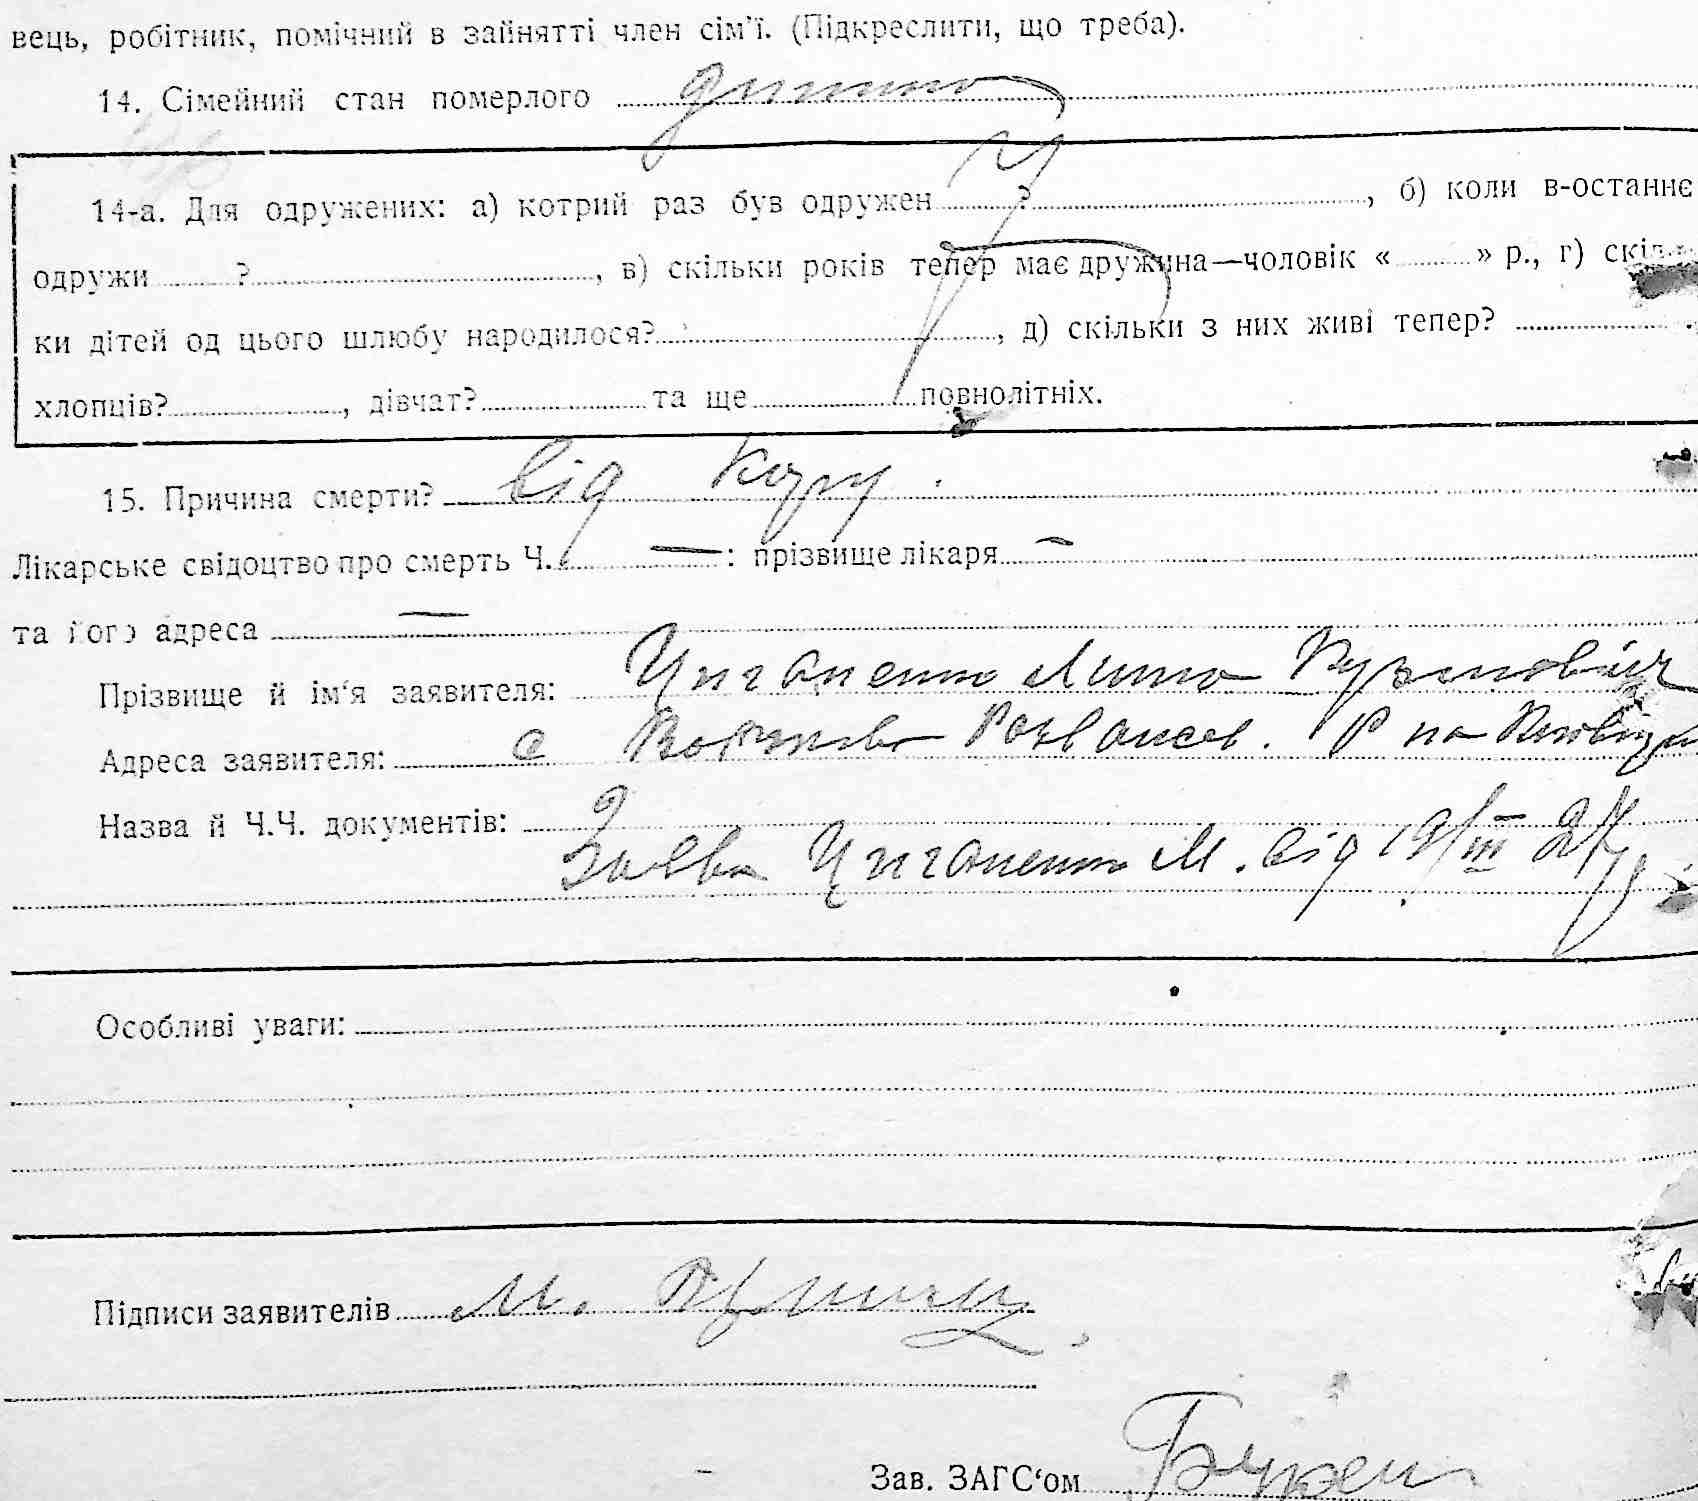 вець, робітник, помічний в зайнятті член сім'ї. (Підкреслити, що треба).
14. Сімейний стан померлого дитина
14-а. Для одружених: а) котрий раз був одружен ?, б) коли в-останнє
одружи ?, в) скільки років тепер має дружина—чоловік « » р., г) скіль-
ки дітей од цього шлюбу народилося?, д) скільки з них живі тепер?
хлопців?, дівчат? та ще повнолітніх.
15. Причина смерти? від кору.
Лікарське свідоцтво про смерть Ч. — : прізвище лікаря —
та його адреса —
Прізвище й ім'я заявителя: Циганенко Кузьмович
Адреса заявителя: с Розважев. Р на
Назва й Ч.Ч. документів:
Заява Циганенко М. від 19/III 27 р.
Особливі уваги:
Підписи заявителів М.
Зав. ЗАГС'ом